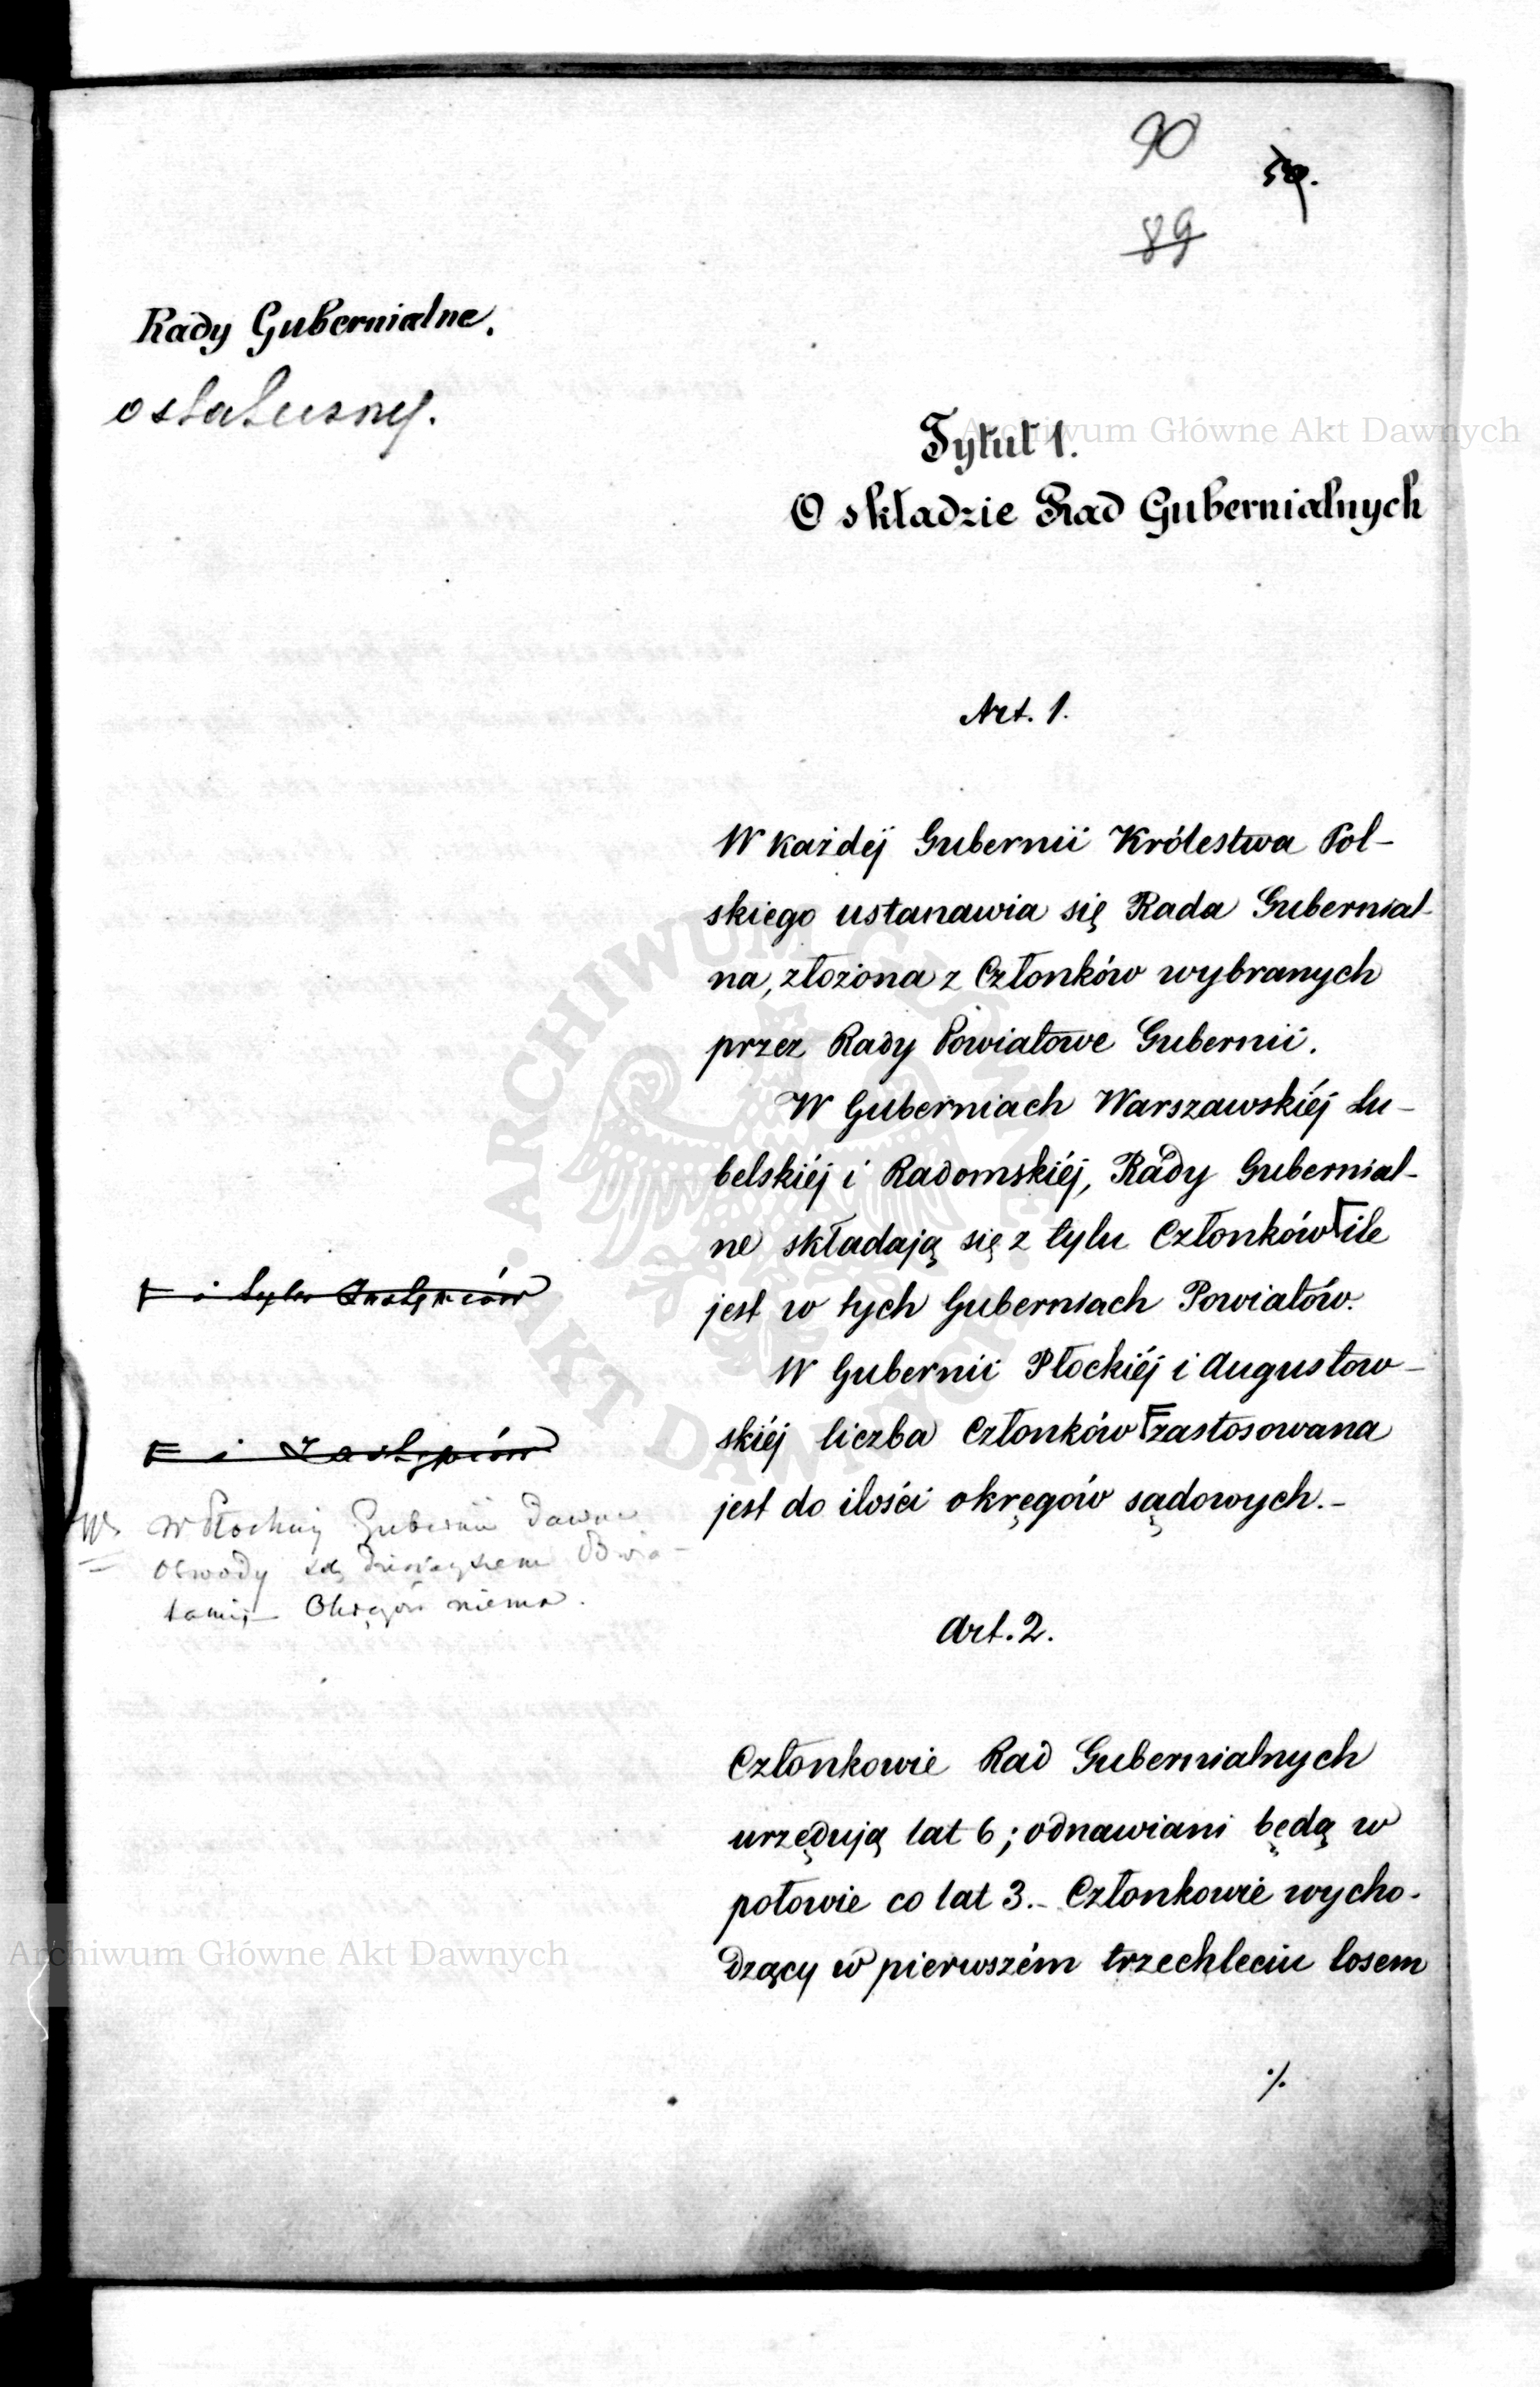 90
89
Rady Gubernialne.
Tytuł 1.
O składzie Rad Gubernialnych
Art. 1.
W każdéj Gubernii Królestwa Pol-
skiego ustanawia się Rada Gubernial-
na, złożona z Członków wybranych
przez Rady Powiatowe Gubernii.
W Guberniach Warszawskiéj Lu-
belskiéj i Radomskiéj, Rady Gubernial-
ne składają się z tylu Członków ile
jest w tych Guberniach Powiatów.
W Gubernii Płockiéj i Augustow-
skiéj liczba Członków zastosowana
jest do ilości okręgów sądowych.-
F i tylu Zastępców
F i Zastępców
W Płockiej Gubernii dawne
Obwody są dzisiejszem Powia-
tami, Okręgów niema.
Art. 2.
Członkowie Rad Gubernialnych
urzędują lat 6; odnawiani będą w
połowie co lat 3.- Członkowie wycho-
dzący w pierwszém trzechleciu losem
./.
Archiwum Główne Akt Dawnych
Archiwum Główne Akt Dawnych
ARCHIWUM GŁÓWNE AKT DAWNYCH